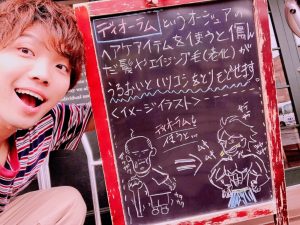 ディオーラム というオージュアの
ヘアケアアイテムを使うと傷ん
だ髪やエイジング毛(老化)が
うるおいとハリコシをとりもどせます。
<イメージイラスト>
ディオーラムを
使うと…